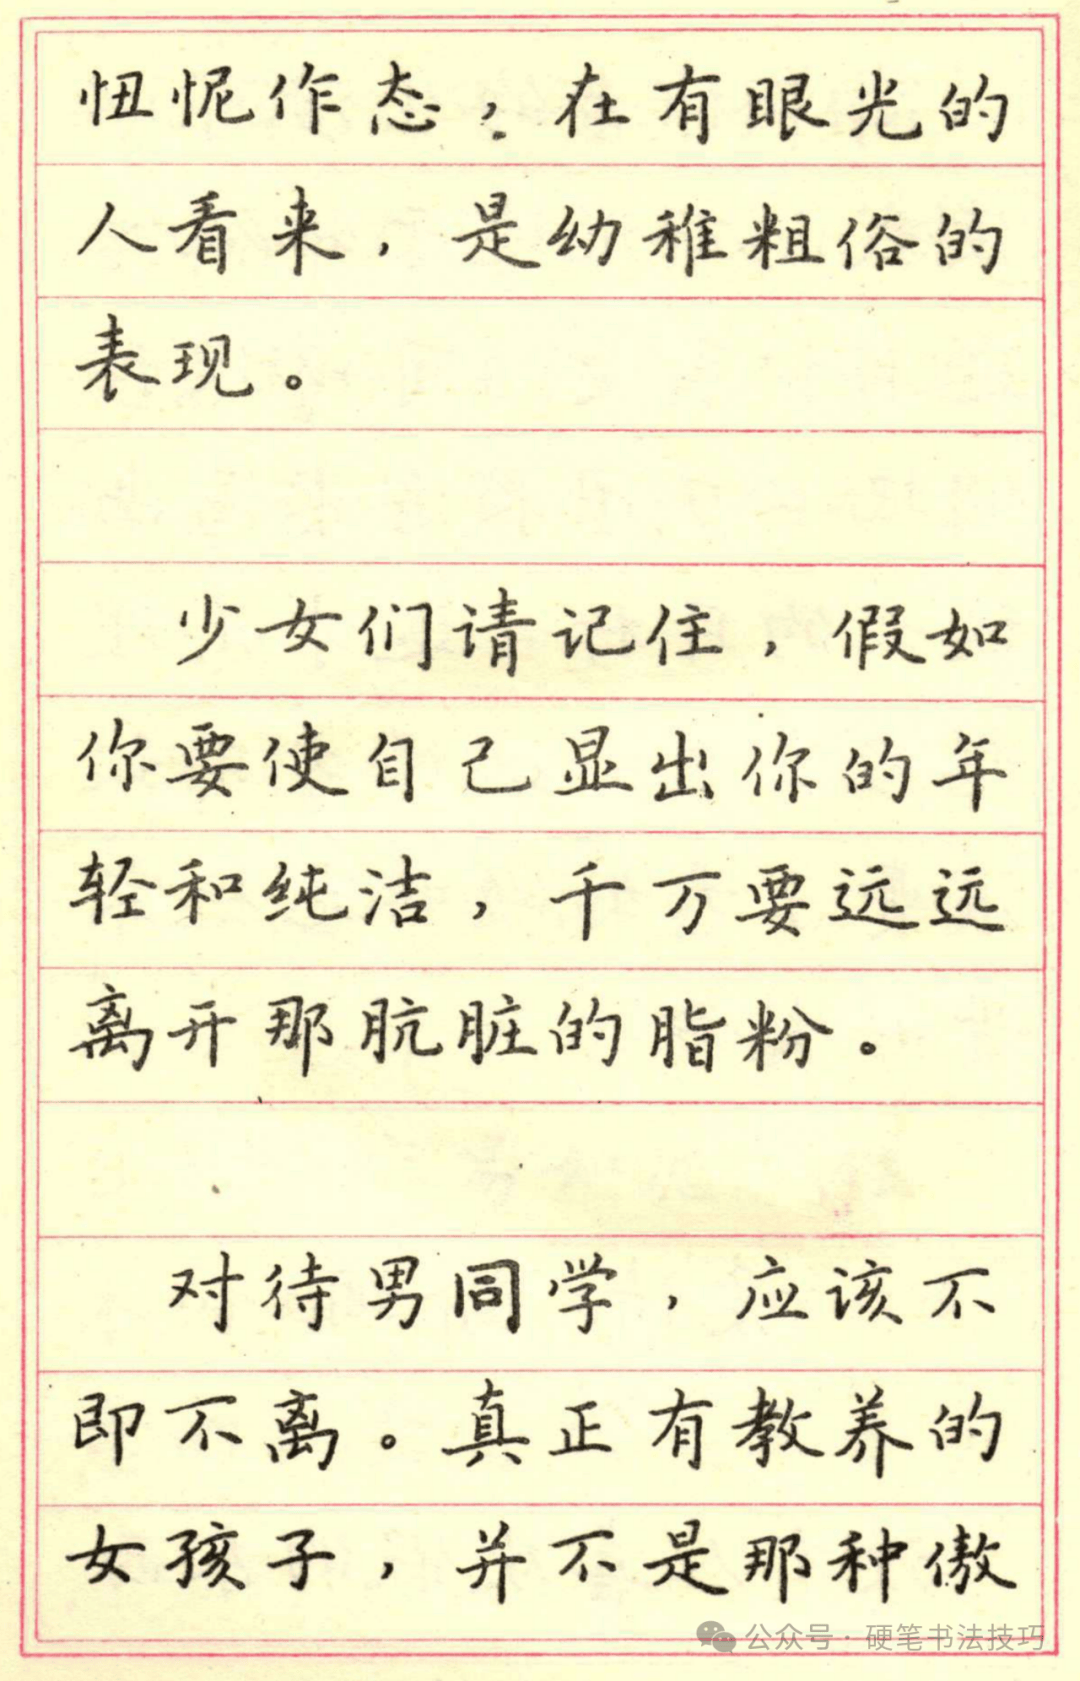 忸怩作态，在有眼光的
人看来，是幼稚粗俗的
表现。
少女们请记住，假如
你要使自己显出你的年
轻和纯洁，千万要远远
离开那肮脏的脂粉。
对待男同学，应该不
即不离。真正有教养的
女孩子，并不是那种傲
公众号·硬笔书法技巧